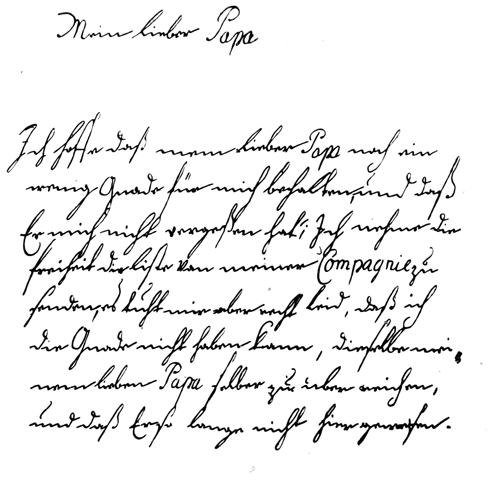 Mein lieber Papa
Ich hoffe daß mein lieber Papa noch ein
wenig Gnade für mich behalten, und daß
Er mich nicht vergeßen hat; Ich nehme die
freiheit die liste von meiner Compagnie zu
senden, es tuht mir aber recht leid, daß ich
die Gnade nicht haben kann, dieselbe mei-
nem lieben Papa selber zu überreichen,
und daß Er so lange nicht hier gewesen.